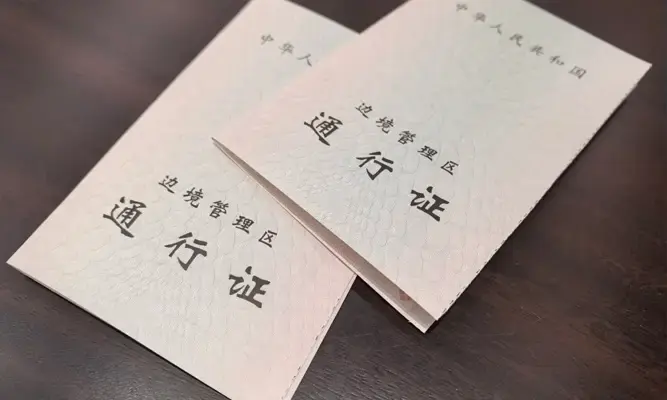 中华人
边境管理区
通行证
中华人民共和国
边境管理区
通行证